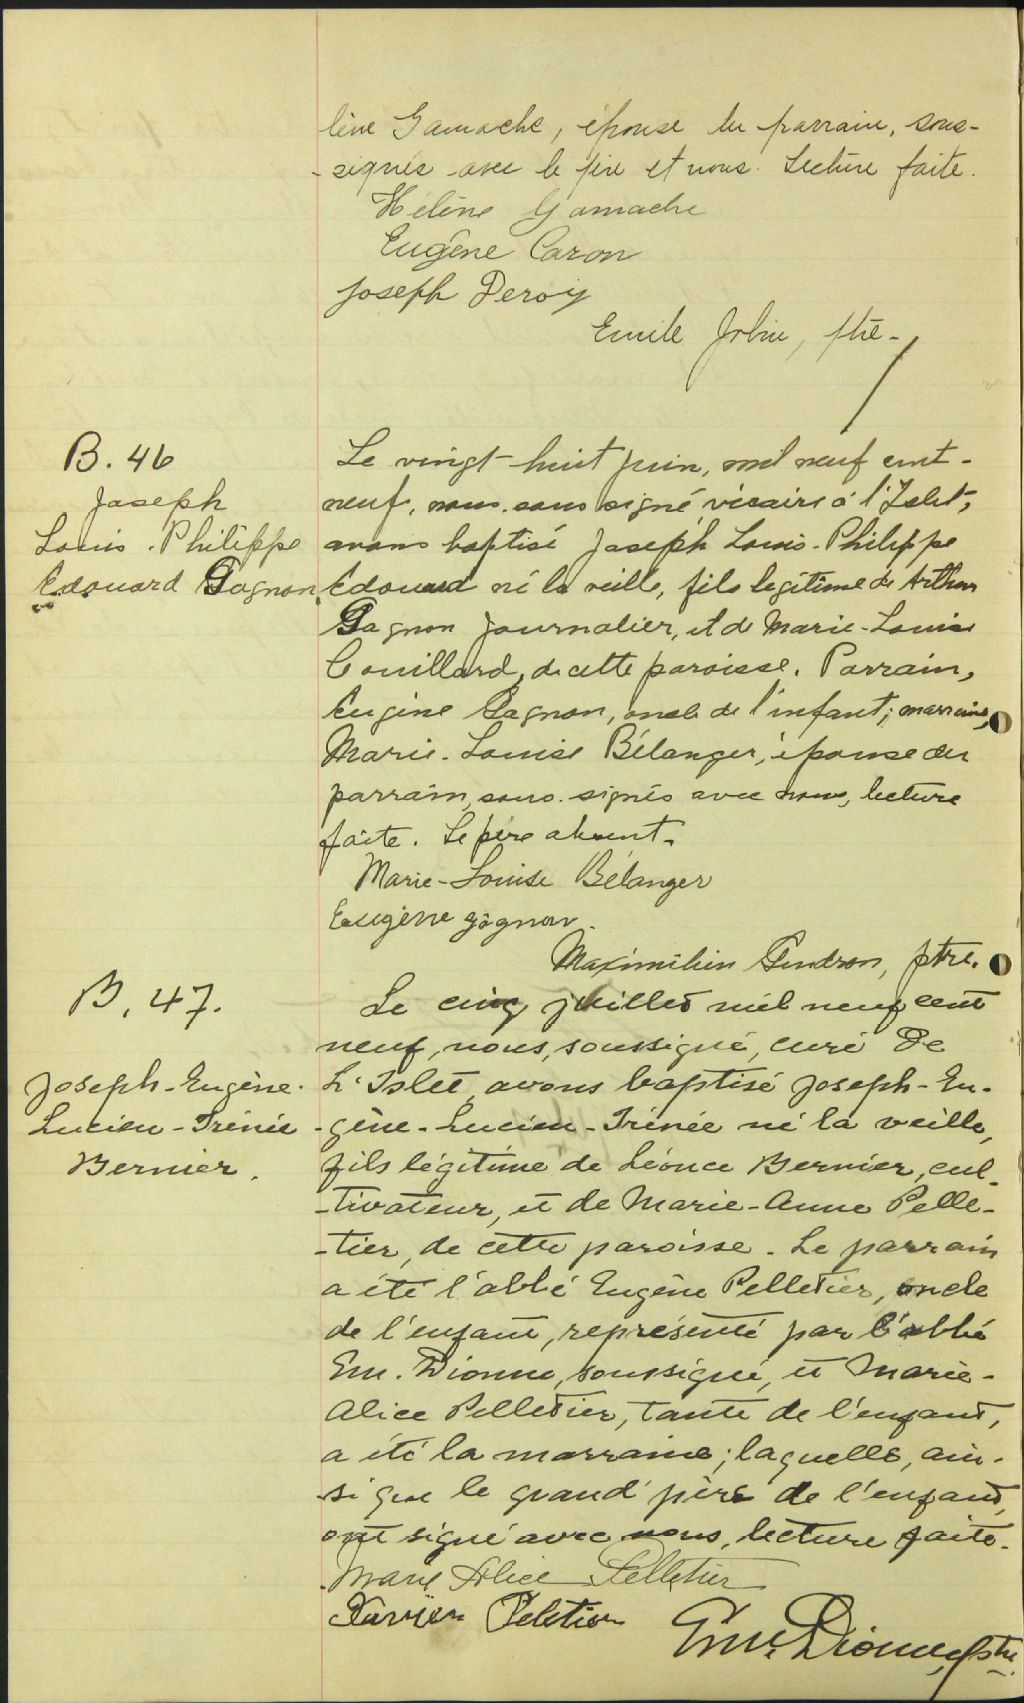 lène Gamache, épouse du parrain, sous-
-signés avec le père et nous. Lecture faite.
Hélène Gamache
Eugène Caron
Joseph Deroy
Emile Jobin, ptre-
B. 46
Joseph
Louis-Philippe
Edouard Gagnon
Le vingt-huit juin, mil neuf cent-
neuf, nous sous signé vicaire à l'Islet,
avons baptisé Joseph Louis-Philippe
Edouard né la veille, fils légitime de Arthur
Gagnon journalier, et de Marie-Louise
Couillard, de cette paroisse. Parrain,
Eugène Gagnon, oncle de l'enfant; marraine,
Marie-Louise Bélanger, épouse du
parrain, sous-signés avec nous, lecture
faite. Le père absent.
Marie-Louise Bélanger
Eugène Gagnon.
Maximilien Gendron, ptre.
B. 47.
Joseph-Eugène-
Lucien-Irénée
Bernier.
Le cinq juillet mil neuf cent
neuf, nous, soussigné, curé de
L'Islet, avons baptisé Joseph-Eu-
-gène-Lucien-Irénée né la veille,
fils légitime de Léonce Bernier, cul-
-tivateur, et de Marie-Anne Pelle-
-tier, de cette paroisse. Le parrain
a été l'abbé Eugène Pelletier, oncle
de l'enfant, représenté par l'abbé
Em. Dionne, soussigné, et Marie-
Alice Pelletier, tante de l'enfant,
a été la marraine; laquelle, ain-
-si que le grand'père de l'enfant,
ont signé avec nous, lecture faite.
Marie Alice Pelletier
Xavier Peletier
Em. Dionne, ptre.